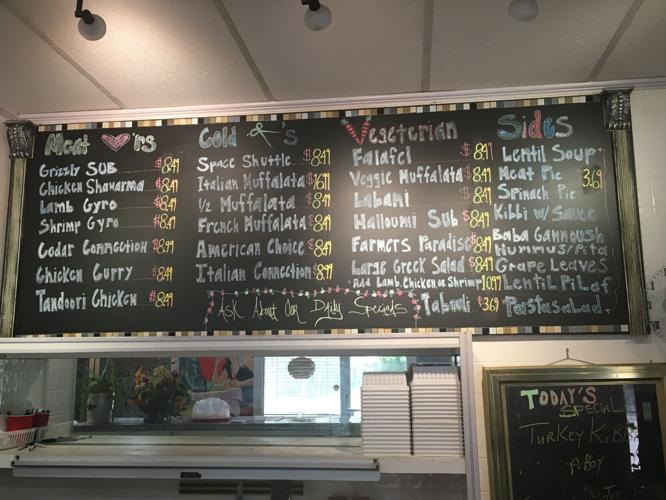 Meat ♥'rs
Grizzly SUB $8.49
Chicken Shawarma $8.49
Lamb Gyro $8.49
Shrimp Gyro $8.49
Cedar Connection $8.99
Chicken Curry $8.49
Tandoori Chicken $8.49
Cold ✂'s
Space Shuttle $8.49
Italian Muffalata $16.99
1/2 Muffalata $8.49
French Muffalata $8.49
American Choice $8.49
Italian Connection $8.99
Ask About Our Daily Specials
Vegeterian
Falafel $8.49
Veggie Muffalata $8.49
Labani $8.49
Malloumi Sub $8.49
Farmers Paradise $8.49
Large Greek Salad $8.49
Add Lamb, Chicken or Shrimp 10.99
Tabouli $3.69
Sides
Lentil Soup
Meat Pie
3.69
Spinach Pie
Kibbi w/ Sauce
Baba Gannoush
Hummus/Pita
Grape Leaves
Lentil Pilaf
Pasta salad
TODAY'S
SPECIAL
Turkey
P.Boy